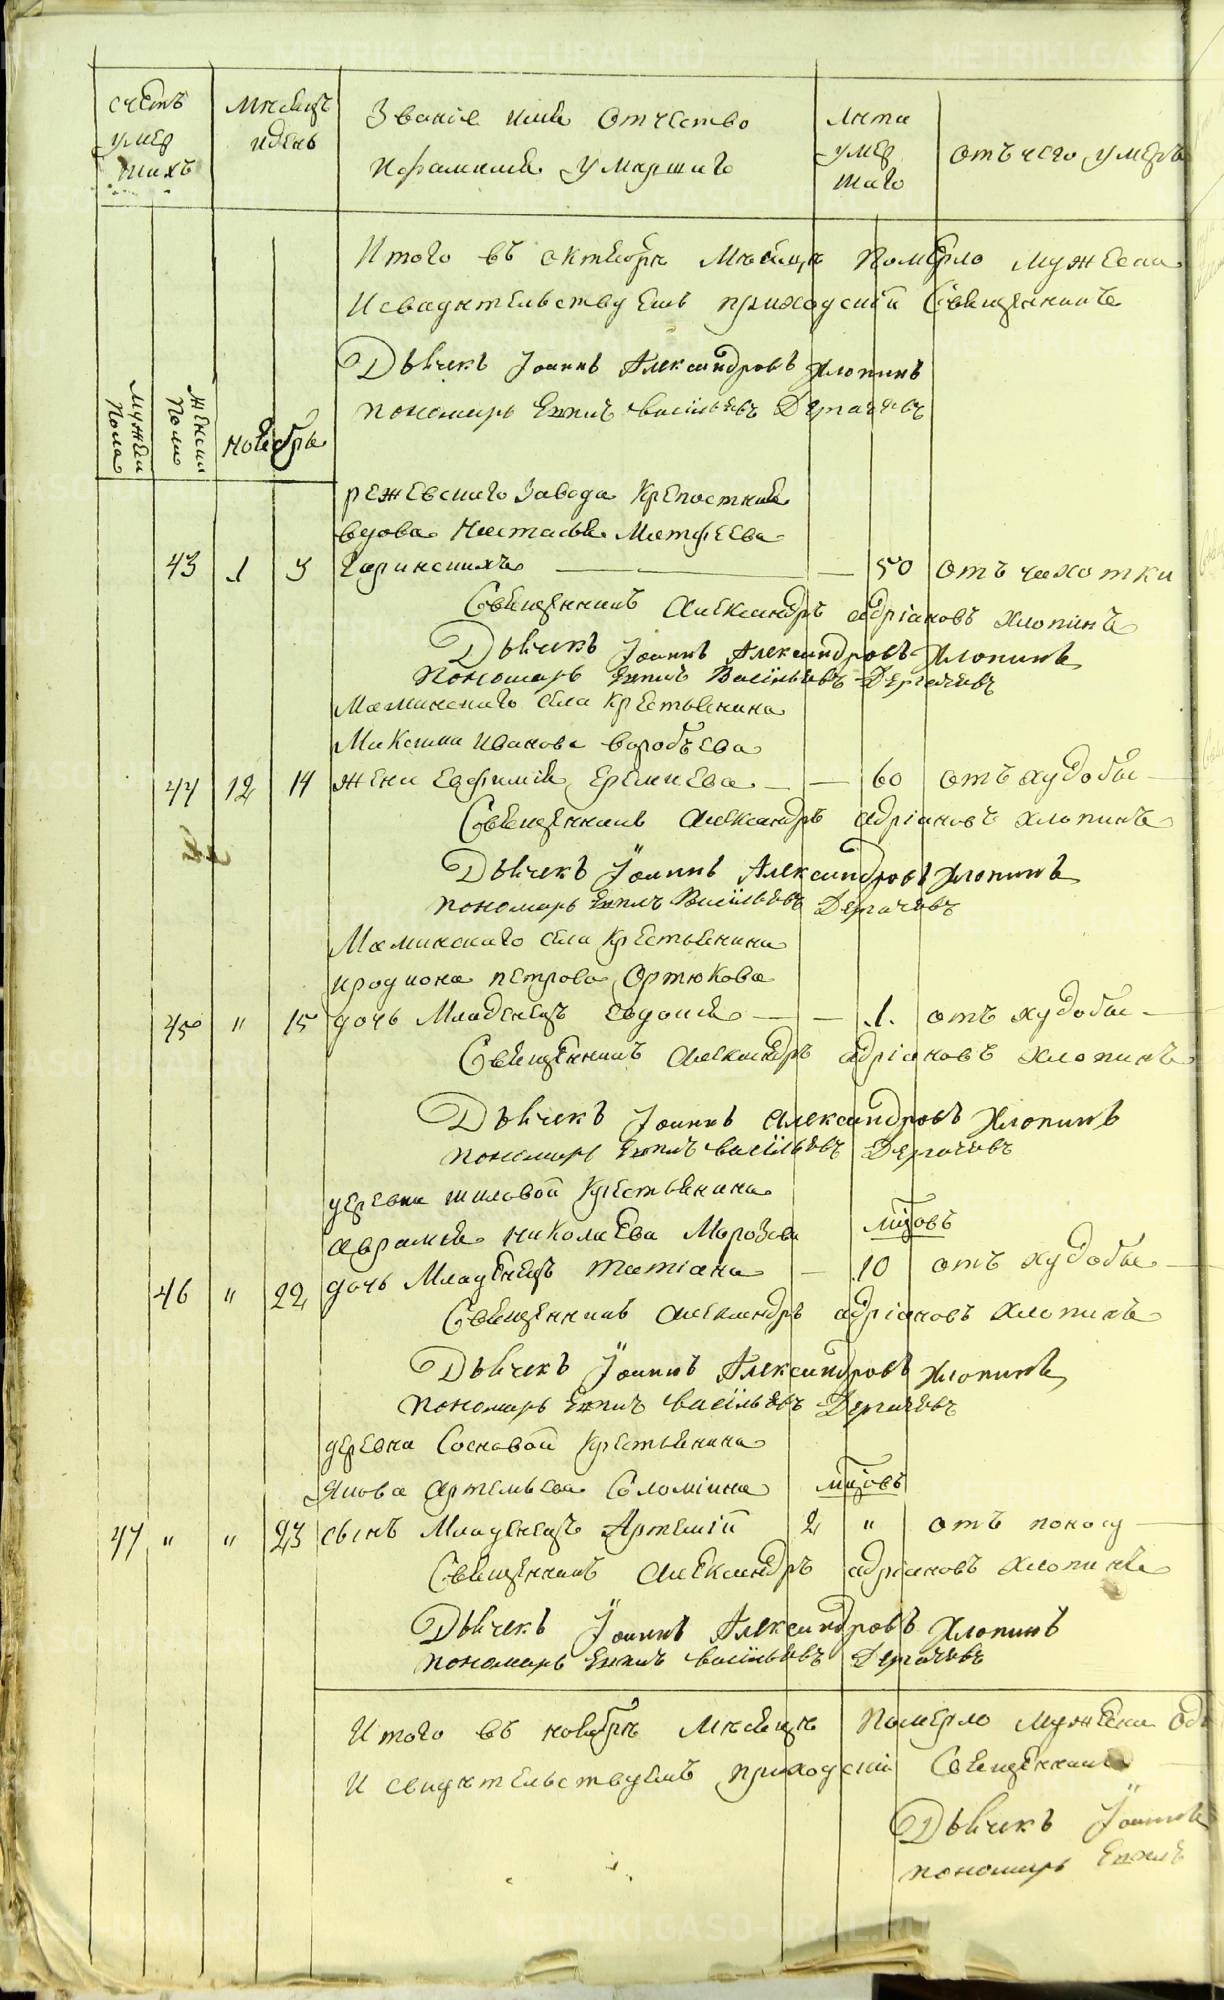 METRIKI.GASO-URAL.RU
счетъ умер шихъ
Мѣсяцъ идень
Званіе имя Отчество ифамилия умершаго
Лѣта умер шаго
Отъ чего умеръ
мужеска Пола
женска Пола
Итого въ октябрѣ Мѣсяцѣ Померло мужеска
И свидѣтельствуемъ приходскій Священникъ
Дьячекъ Іоаннъ Александровъ Хлопинъ
пономарь Васильевъ Дергачевъ
ноября
режевскаго Завода Крепостная
вдова Настасья Матфеева
43 1 3 Гаринскихъ 50 отъ чихотки
Священникъ Александръ адріановъ Хлопинъ
Дьячекъ Іоаннъ Александровъ Хлопинъ
пономарь Васильевъ Дергачевъ
Маминскаго села Крестьянина
Максима Иванова воробьева
44 12 14 жена Евфимія Еремиева 60 отъ худобы
Священникъ Александръ адріановъ Хлопинъ
Дьячекъ Іоаннъ Александровъ Хлопинъ
пономарь Васильевъ Дергачевъ
Маминскаго села Крестьянина
иродиона петрова Ортюкова
45 " 15 дочь Младенецъ Евдокия 1. отъ худобы
Священникъ Александръ адріановъ Хлопинъ
Дьячекъ Іоаннъ Александровъ Хлопинъ
пономарь васильевъ Дергачевъ
деревни шиловой Крестьянина
аврамия николаева Морозова мцовъ
46 " 22 дочь Младенецъ татіана 10 отъ худобы
Священникъ Александръ адріановъ Хлопинъ
Дьячекъ Іоаннъ Александровъ Хлопинъ
пономарь васильевъ Дергачевъ
деревни Сосновой Крестьянина
Якова артемьева Соломіина мцовъ
47 " " 23 сынъ Младенецъ Артемій 2 " отъ поносу
Священникъ Александръ адріановъ Хлопинъ
Дьячекъ Іоаннъ Александровъ Хлопинъ
пономарь васильевъ Дергачевъ
Итого въ ноябрѣ Мѣсяцѣ Померло мужеска
И свидѣтельствуемъ приходскій Священникъ
Дьячекъ Іоаннъ
пономарь
METRIKI.GASO-URAL.RU